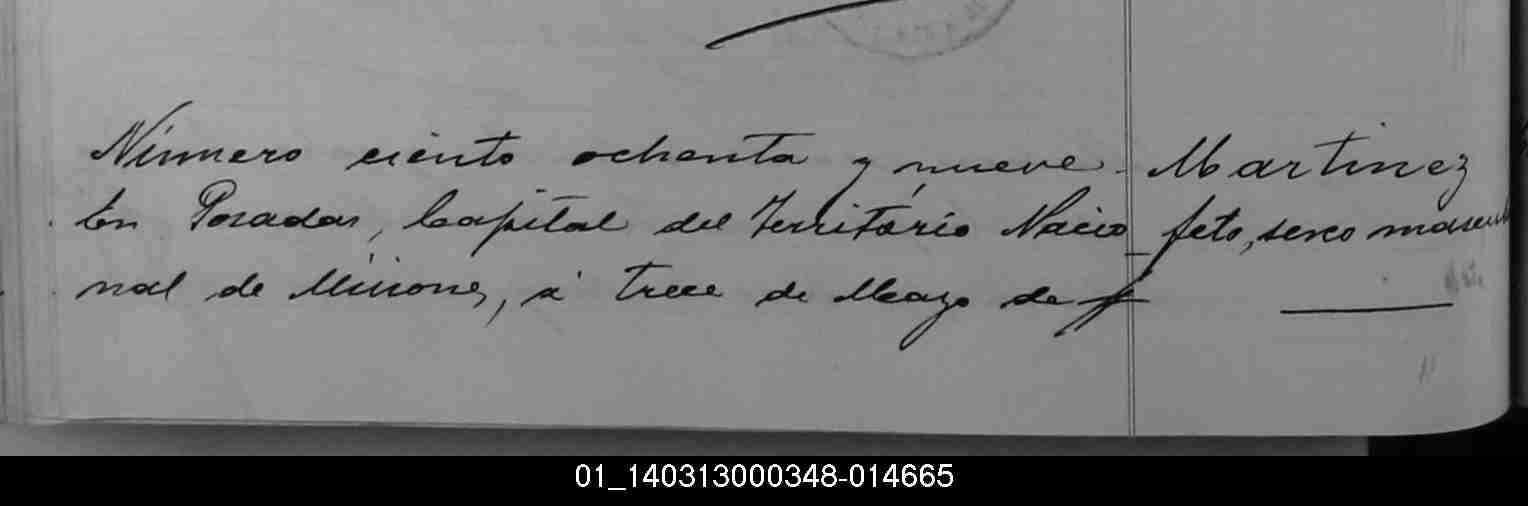 Número ciento ochenta y nueve
En Posadas, Capital del Território Nacio_
nal de Misiones, á trece de Mayo de
Martinez
feto, sexo mascul
01_140313000348-014665